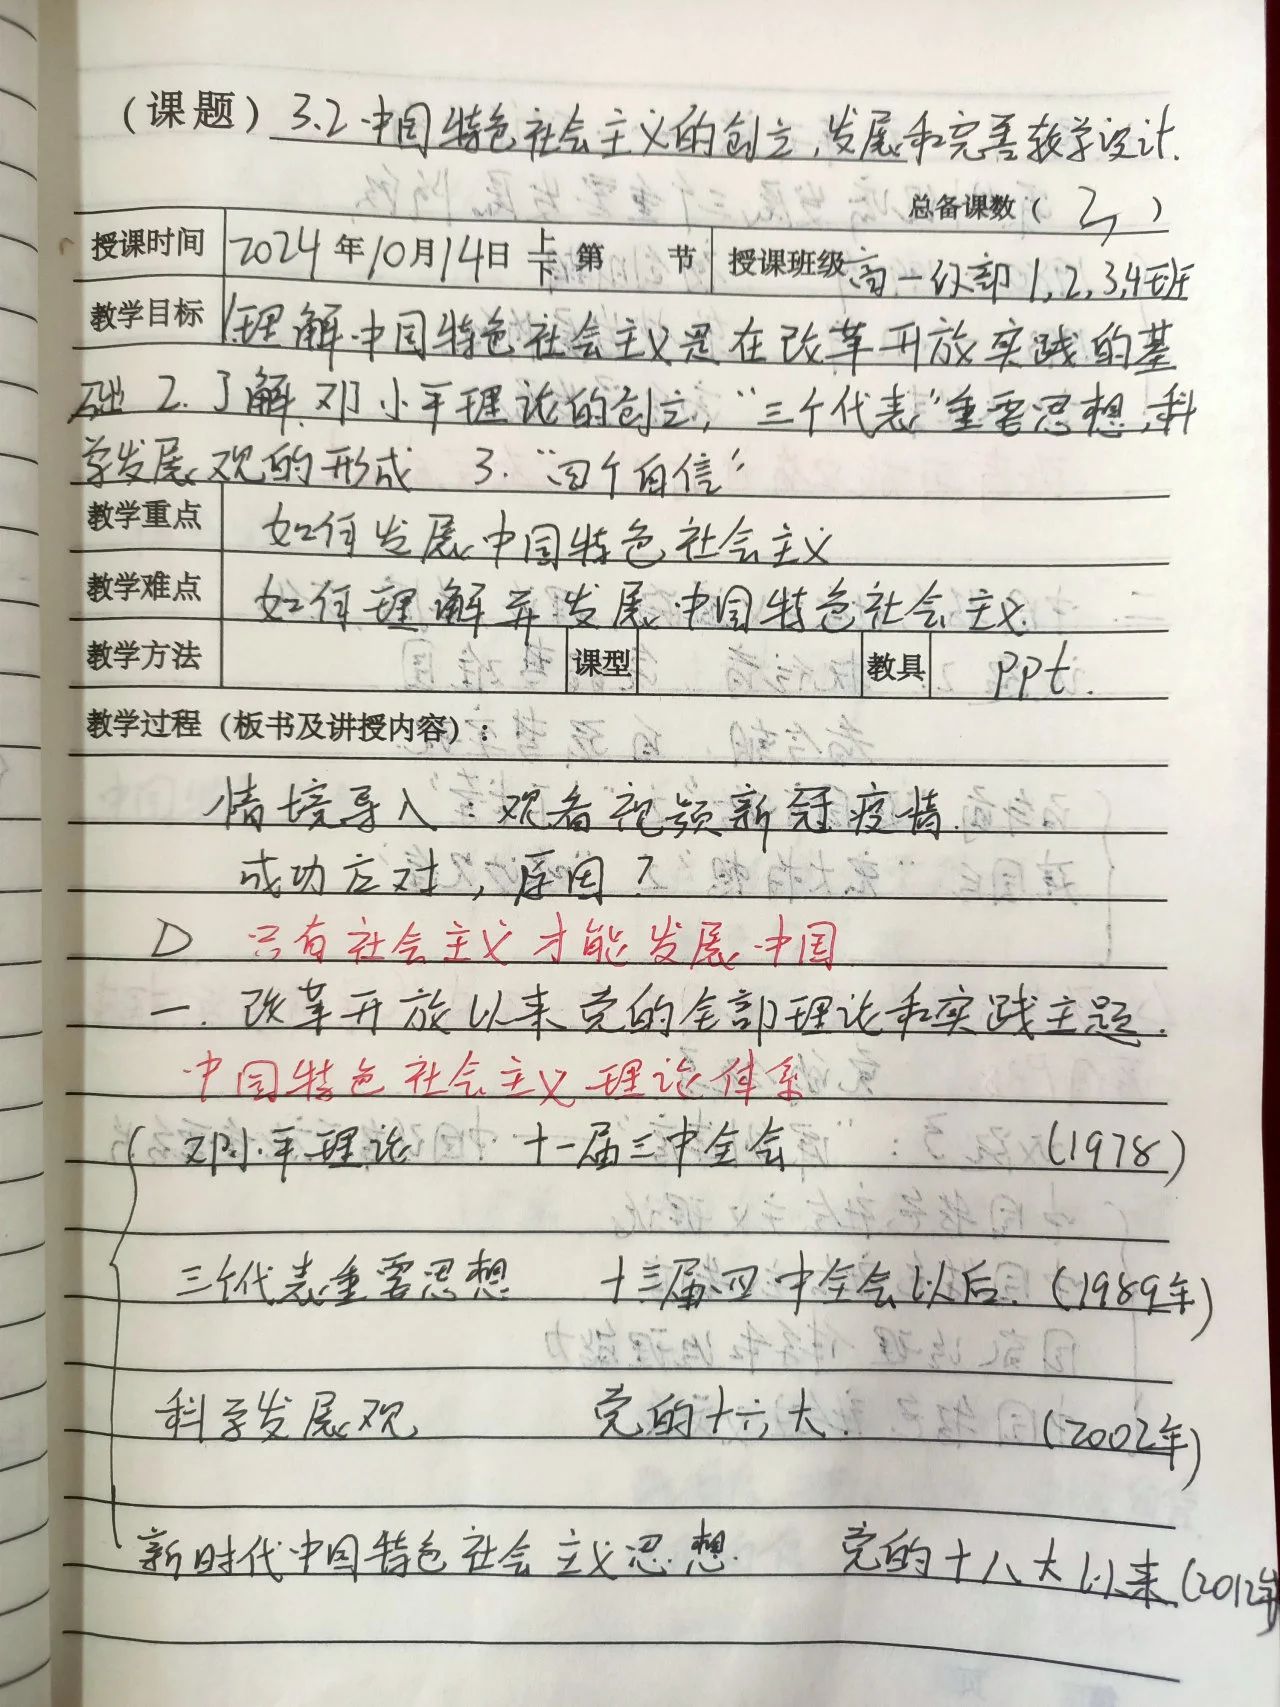 （课题）3.2中国特色社会主义的创立,发展和完善教学设计.
总备课数（ ）
授课时间 2024年10月14日 上下 第 节 授课班级 高一级部1,2,3,4班
教学目标 1.理解中国特色社会主义是在改革开放实践的基
础 2.了解邓小平理论的创立,“三个代表”重要思想,科
学发展观的形成 3.“四个自信”
教学重点 如何发展中国特色社会主义
教学难点 如何理解并发展中国特色社会主义.
教学方法 课型 教具 PPt.
教学过程（板书及讲授内容）：
情境导入：观看视频新冠疫情.
成功应对，原因？
只有社会主义才能发展中国
一.改革开放以来党的全部理论和实践主题.
中国特色社会主义理论体系
邓小平理论 十一届三中全会 (1978)
三个代表重要思想 十三届四中全会以后.(1989年)
科学发展观 党的十六大. (2002年)
新时代中国特色社会主义思想. 党的十八大以来.(2012年